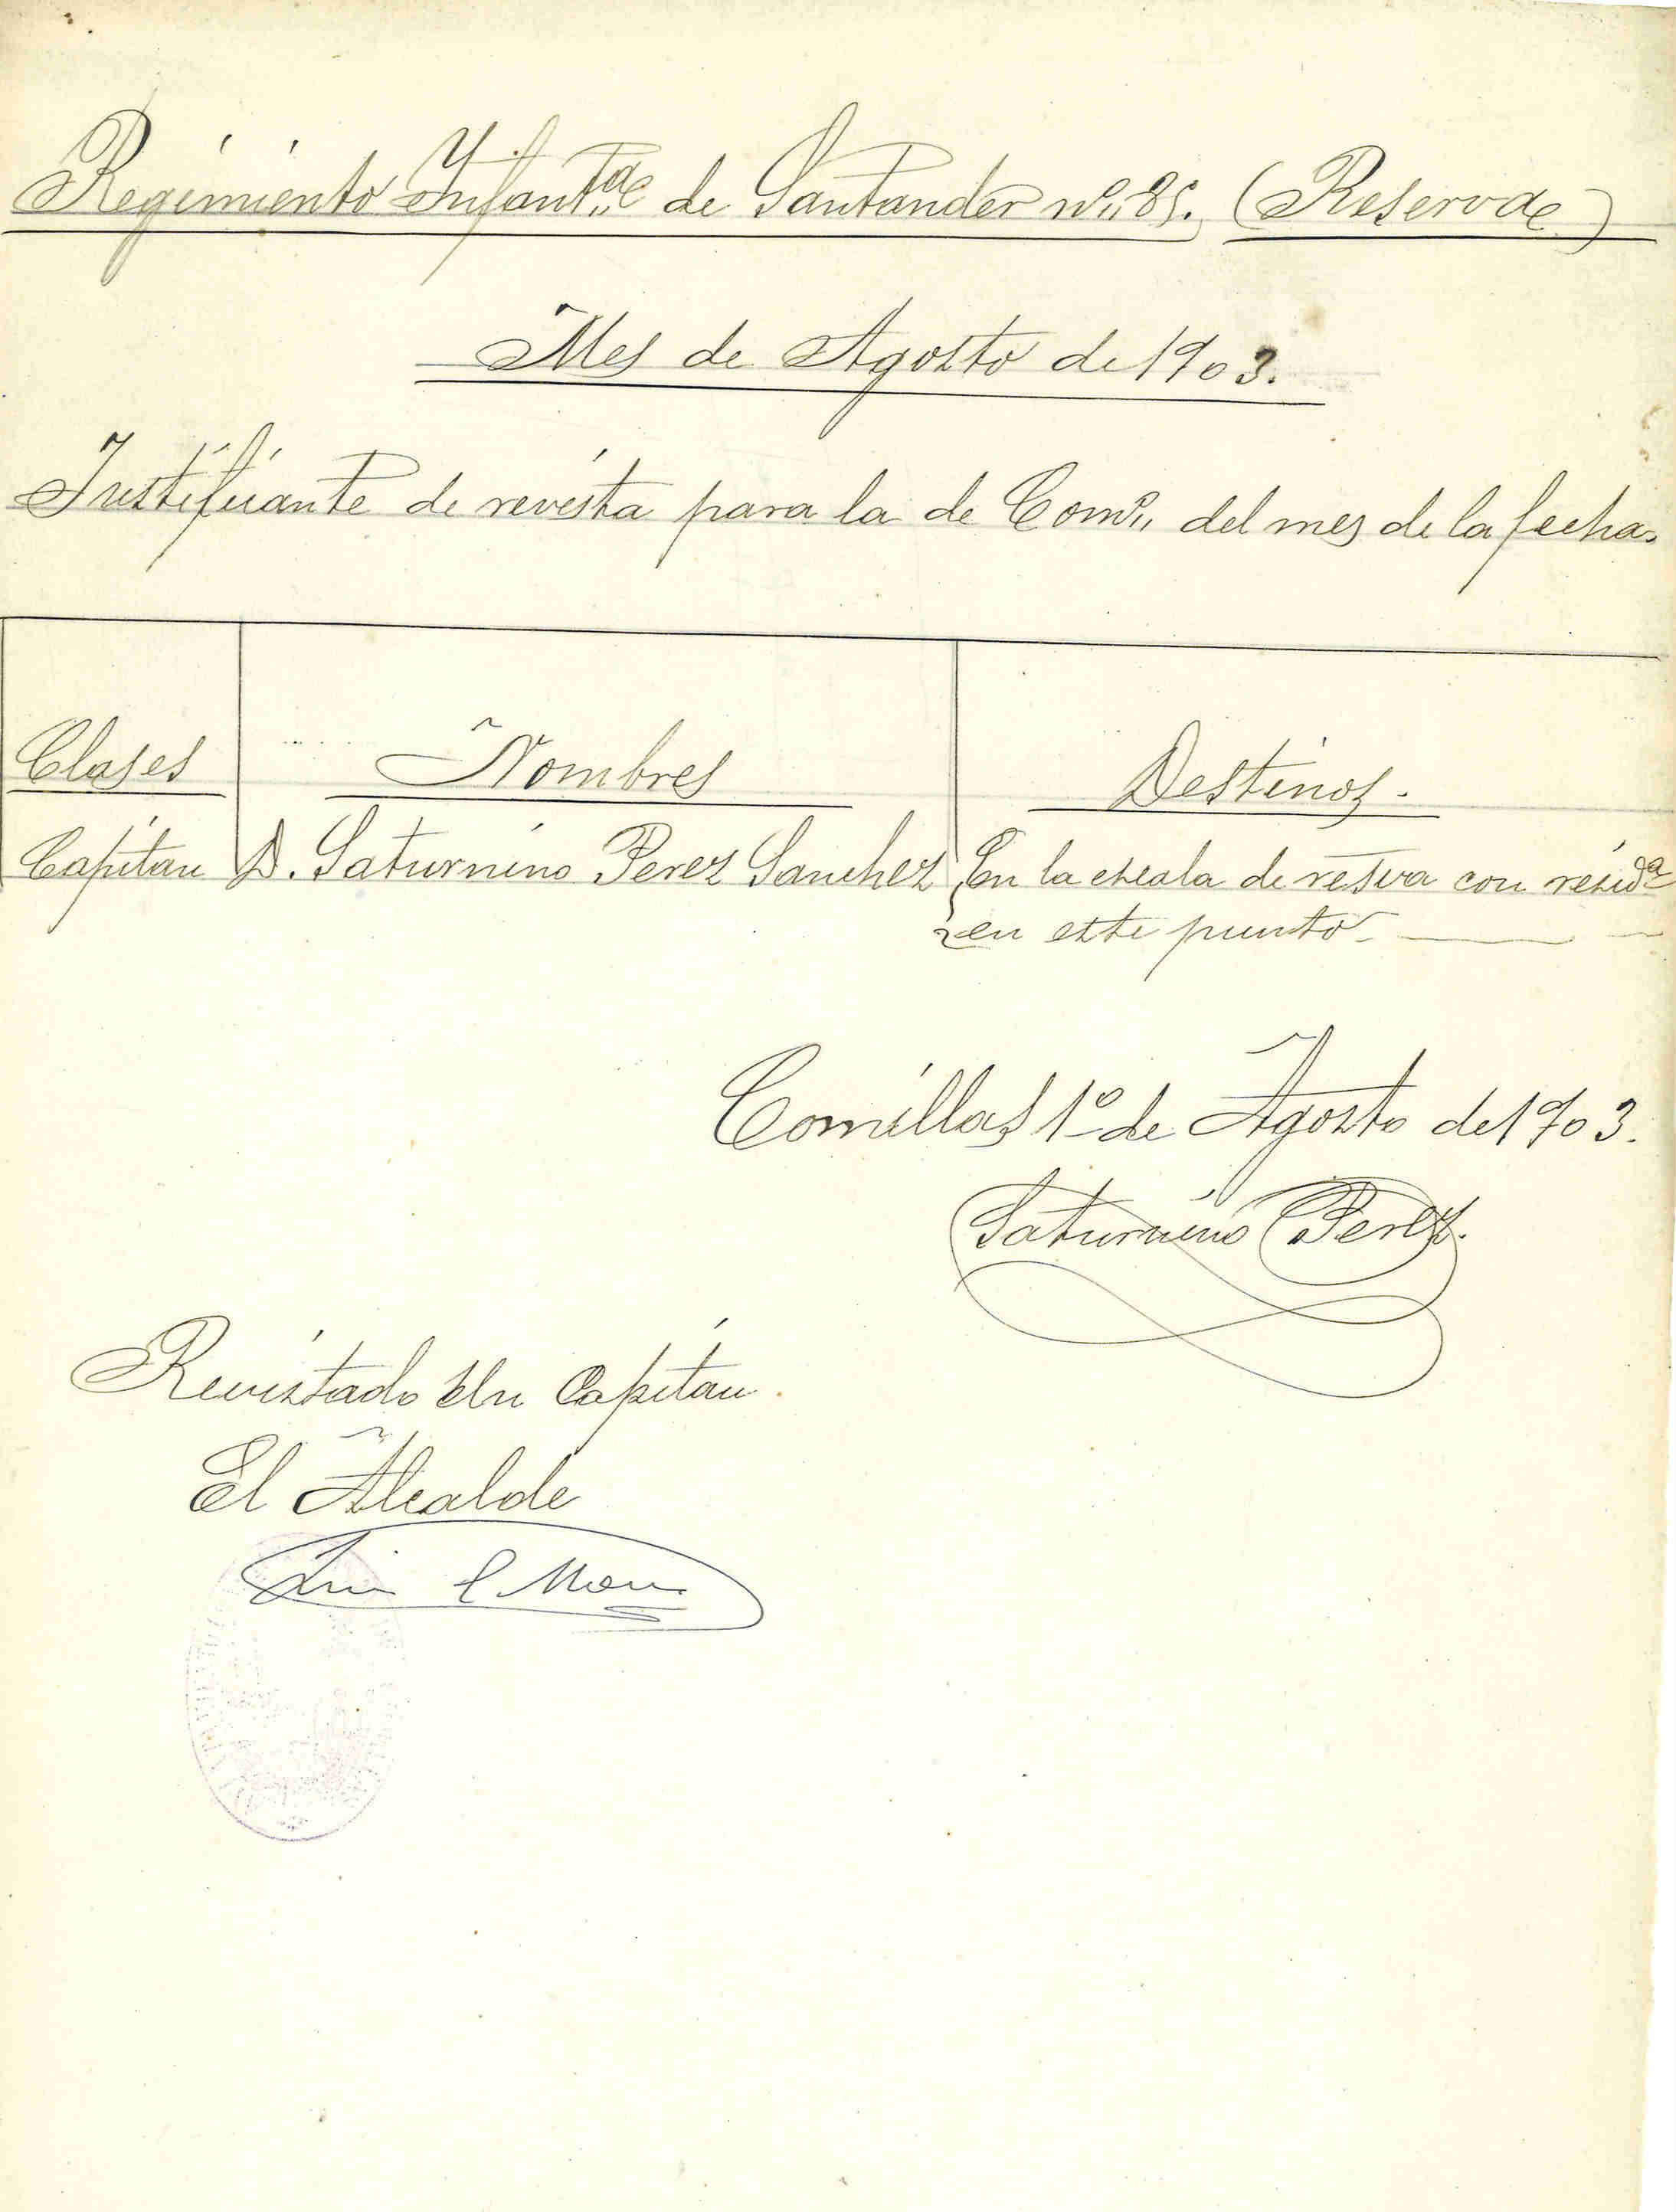 Regimiento Ynfant.ª de Santander nº 85. (Reserva)
Mes de Agosto de 1903.
Justificante de revista para la de Comº del mes de la fecha.
Clases Nombres Destinos.
Capitan D. Saturnino Perez Sanchez En la escala de reserva con resid.ª
en este punto
Comillas 1º de Agosto de 1903.
Saturnino Perez.
Revistado Un Capitan.
El Alcalde